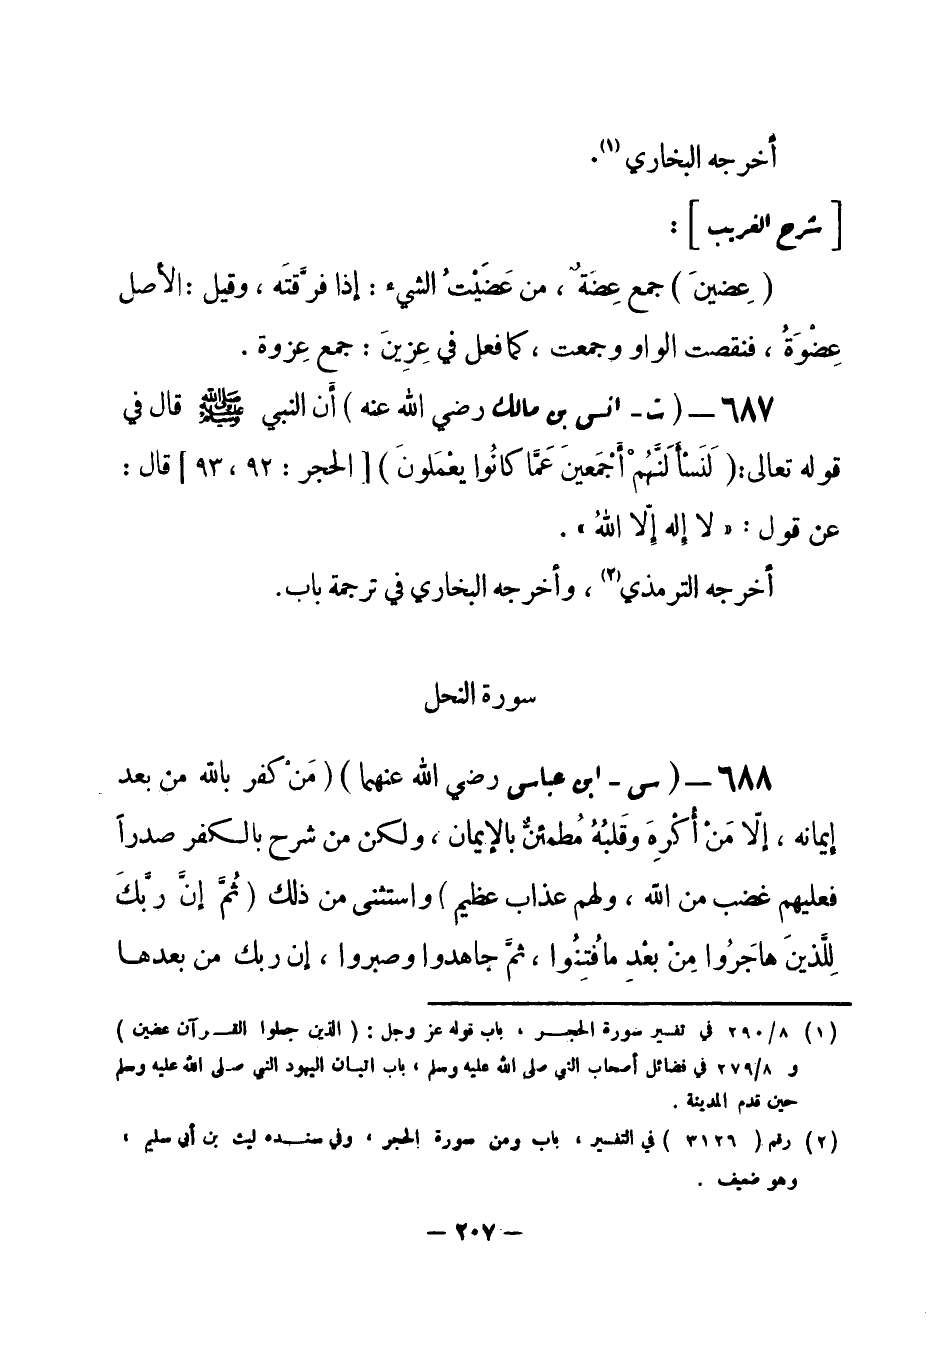 أخرجه البخاري (١).
[ شرح الغريب ] :
( عِضينَ ) جمع عِضَةٌ ، من عَضَيْتُ الشيء : إذا فرَّقتَه ، وقيل : الأصل
عِضْوَةُ ، فنقصت الواو وجمعت ، كما فعل في عِزِينَ : جمع عِزوة .
٦٨٧ ـ ( ت - أنس بن مالك رضي الله عنه ) أن النبي ﷺ قال في
قوله تعالى : ( لَنَسْأَلَنَّهُمْ أَجْمَعينَ عَمَّا كانُوا يعْمَلونَ ) [ الحجر : ٩٢ ، ٩٣ ] قال :
عن قول : « لا إله إلّا اللهُ » .
أخرجه الترمذي (٢) ، وأخرجه البخاري في ترجمة باب .
سورة النحل
٦٨٨ ـ ( س - ابن عباس رضي الله عنهما ) ( مَنْ كفر بالله من بعد
إيمانه ، إلّا مَنْ أُكْرِهَ وقَلبُهُ مُطمئنٌّ بالإيمان ، ولكن من شرح بالكفر صدراً
فعليهم غضب من الله ، ولهم عذاب عظيم ) واستثنى من ذلك ( ثُمَّ إنَّ ربَّكَ
لِلَّذينَ هاجَرُوا مِنْ بعْدِ ما فُتِنُوا ، ثمَّ جاهدوا وصبروا ، إن ربك من بعدها
(١) ٢٩٠/٨ في تفسير سورة الحجر ، باب قوله عز وجل : ( الذين جعلوا القرآن عضين )
و ٢٧٩/٨ في فضائل أصحاب النبي صلى الله عليه وسلم ، باب اتيان اليهود النبي صلى الله عليه وسلم
حين قدم المدينة .
(٢) رقم ( ٣١٢٦ ) في التفسير ، باب ومن سورة الحجر ، وفي سنده ليث بن أبي سليم ،
وهو ضعيف .
– ٢٠٧ –